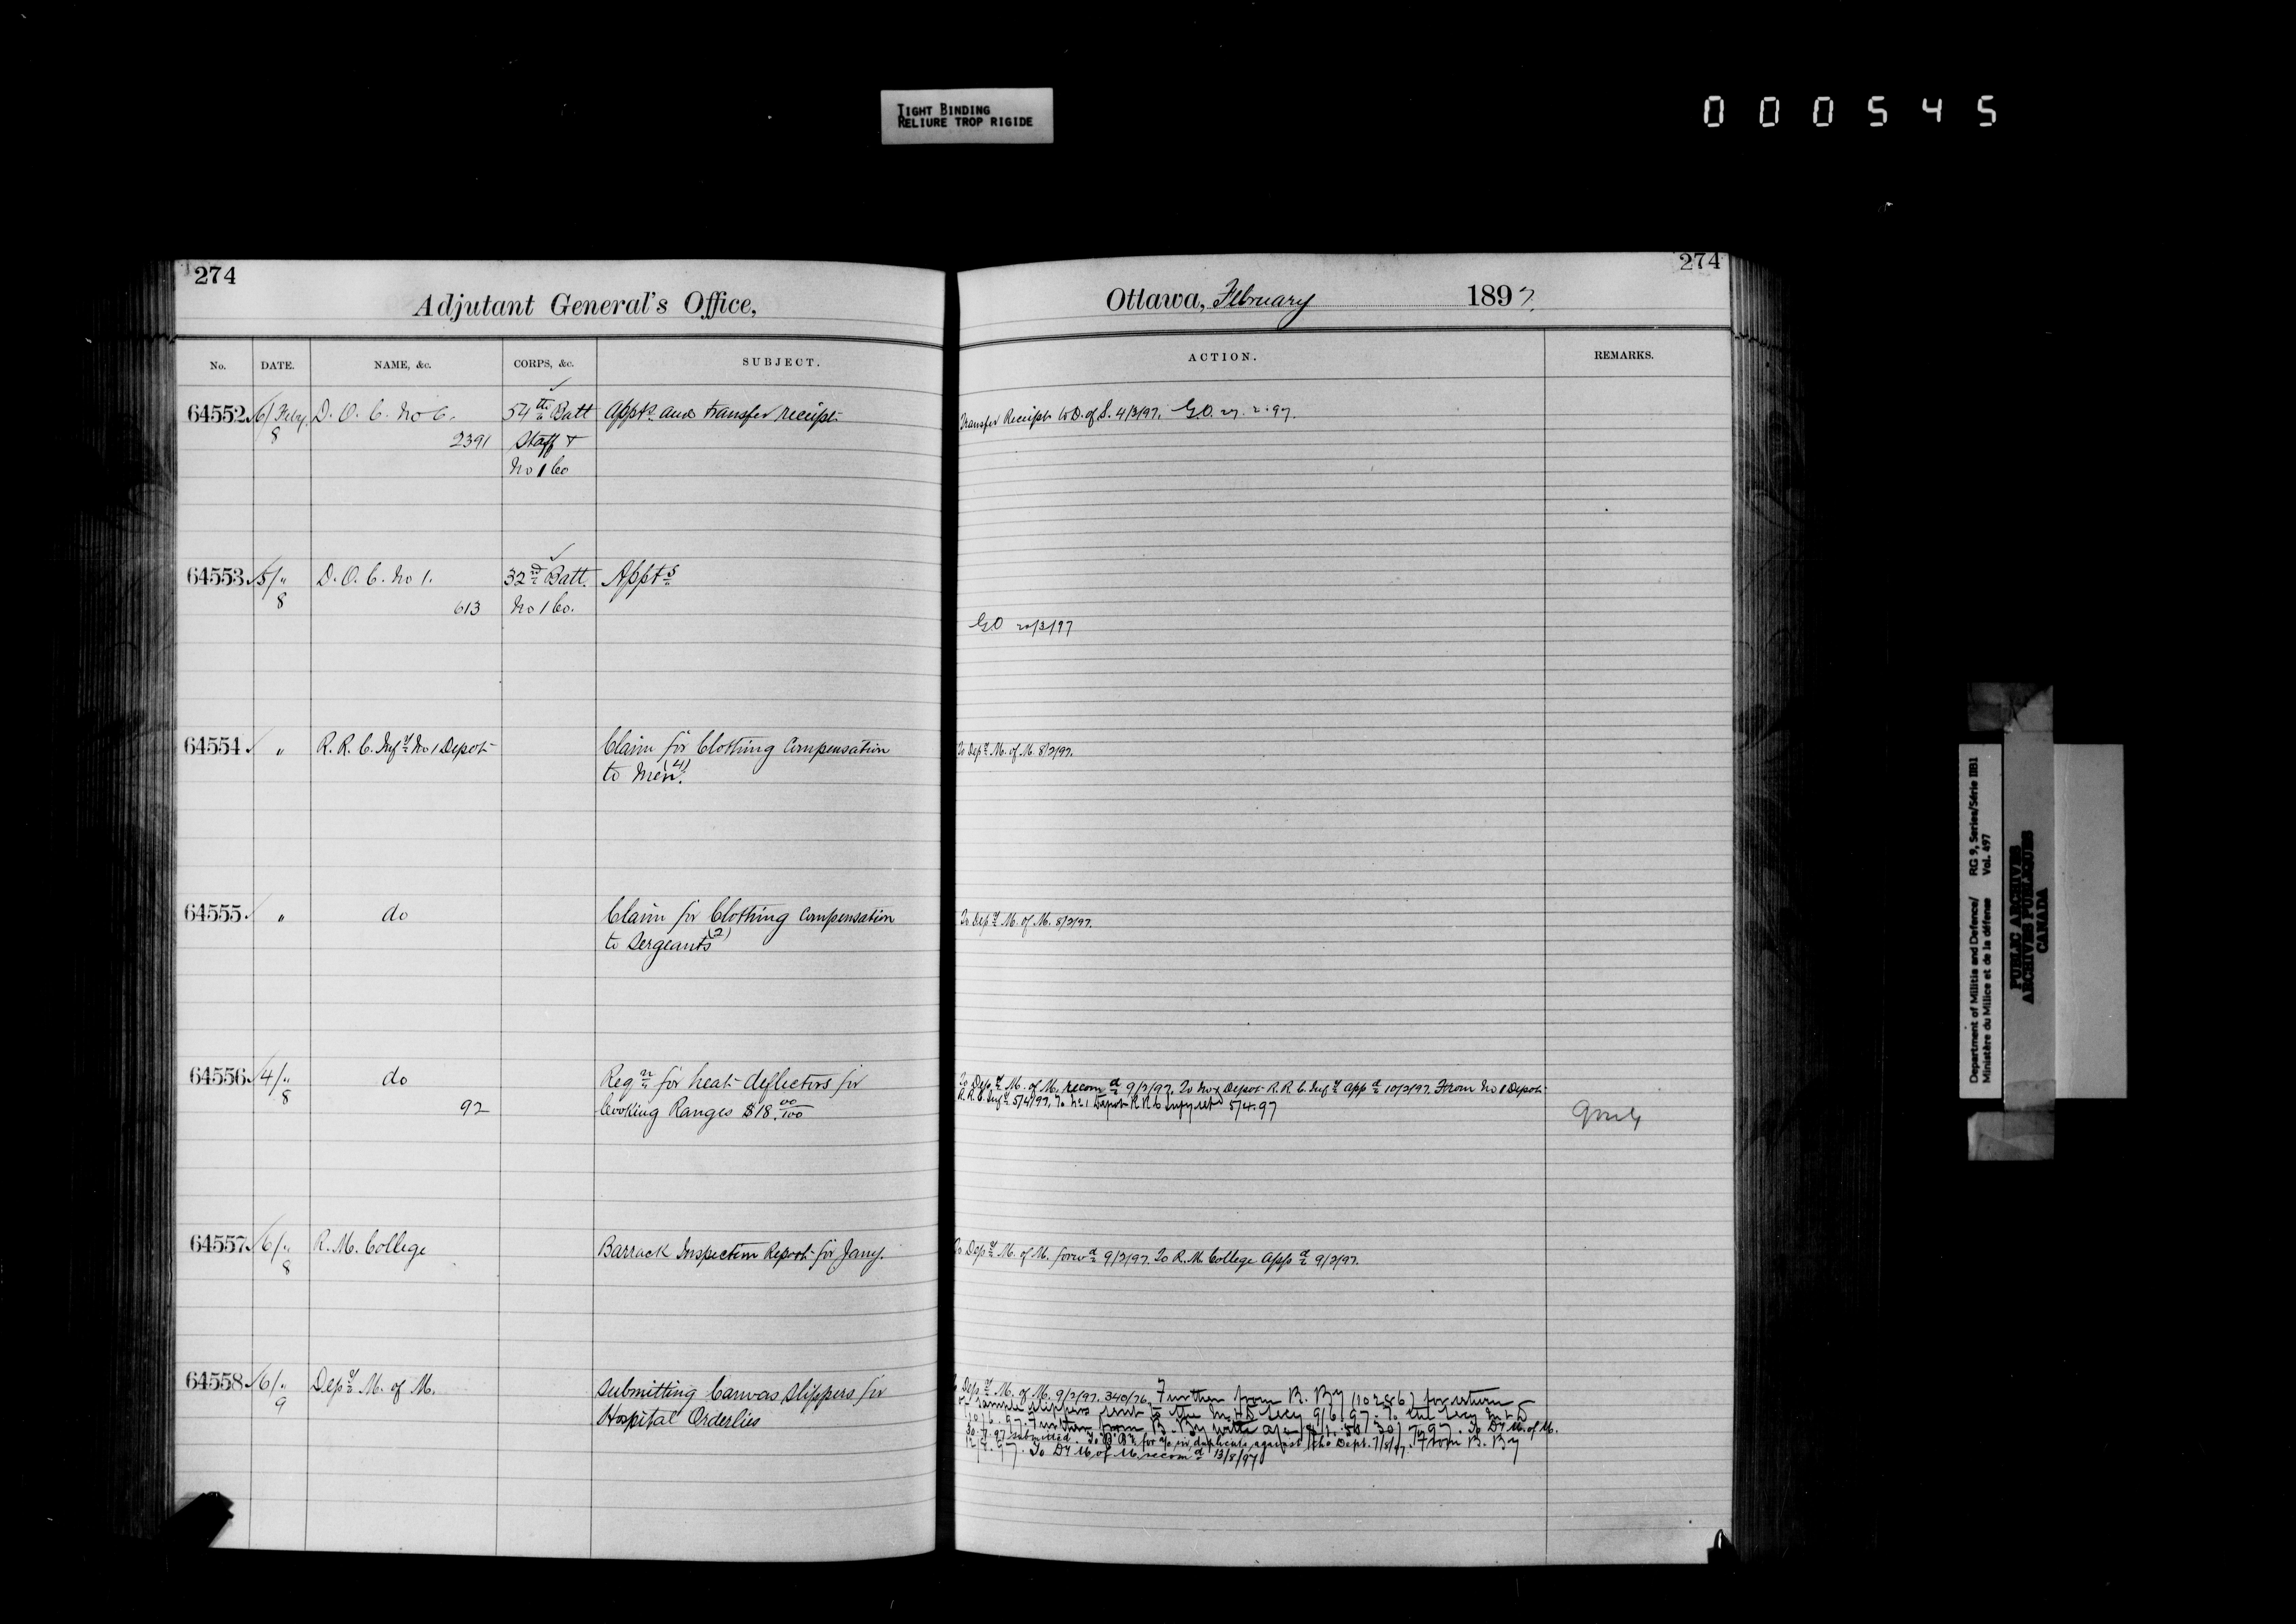 TIGHT BINDING
RELIURE TROP RIGIDE
000545
274
Adjutant General's Office,
No. DATE. NAME, &c. CORPS, &c. SUBJECT.
64552 6/ Feby. D. O. C. No 6. 54th Batt Appts and transfer receipt
8 2391 Staff +
No 1 Co
64553 5/ " D. O. C. No 1. 32nd Batt. Appts
8 613 No 1 Co.
64554 " R. R. C. Infy No 1 Depot Claim for Clothing Compensation
to Men (4).
64555 " do Claim for Clothing Compensation
to Sergeants (2)
64556 4/ " do Reqn for heat deflectors for
8 92 Cooking Ranges $18.00/100
64557 6/ " R. M. College Barrack Inspection Report for Jany.
8
64558 6/ " Depy M. of M. Submitting Canvas Slippers for
9 Hospital Orderlies
274
Ottawa, February 1897.
ACTION. REMARKS.
Transfer Receipt to D. of S. 4/3/97. G.O. 27. 2. 97.
GO 20/3/97
To Depy M. of M. 8/2/97.
To Depy M. of M. 8/2/97.
To Depy M. of M. recomd 9/2/97. To No 1 Depot R. R. C. Infy appd 10/2/97. From No 1 Depot
R. R. C. Infy 5/4/97. To No 1 Depot R R C Infy retd 5/4.97
To Depy M. of M. forwd 9/2/97. To R. M. College appd 9/2/97.
Depy M. of M. 9/2/97. 340/76. Further from B. By (10286) for return
of sample slippers sent to the M & D Secy 9/6/97. To the Secy M & D
10/6.97. Further from B. By with a/c 30/7.97. To Dy M. of M.
30.7.97 submitted. for a/c in duplicate against the Dept. 7/8/97. From B. By
To Dy M of M recomd 13/8/97
Department of Militia and Defence/ RG 9, Series/Série IIB1
Ministère du Milice et de la défense Vol. 497
PUBLIC ARCHIVES
ARCHIVES PUBLIQUES
CANADA